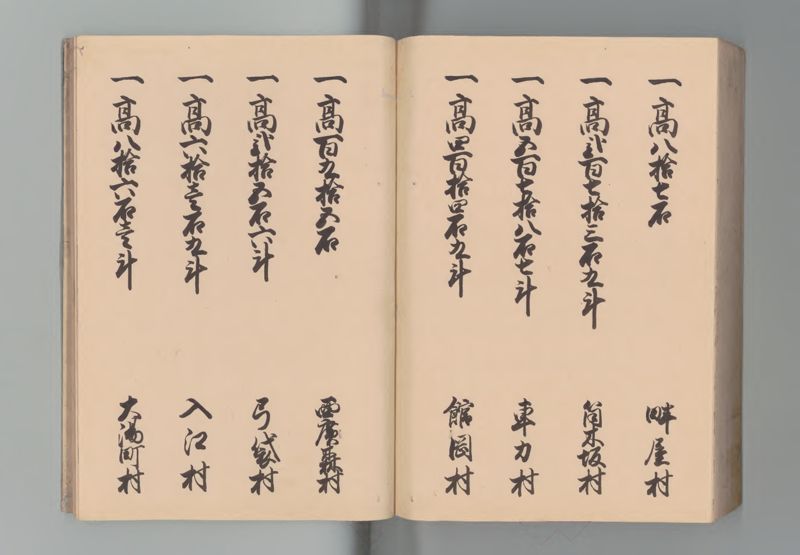 一高八拾七石 畔屋村
一高弐百七拾三石九斗 筒木坂村
一高五百七拾八石七斗 車力村
一高四百拾四石九斗 館岡村
一高百九拾五石 西廣森村
一高弐拾五石六斗 弓袋村
一高六拾壱石九斗 入江村
一高八拾六石壱斗 大湯町村